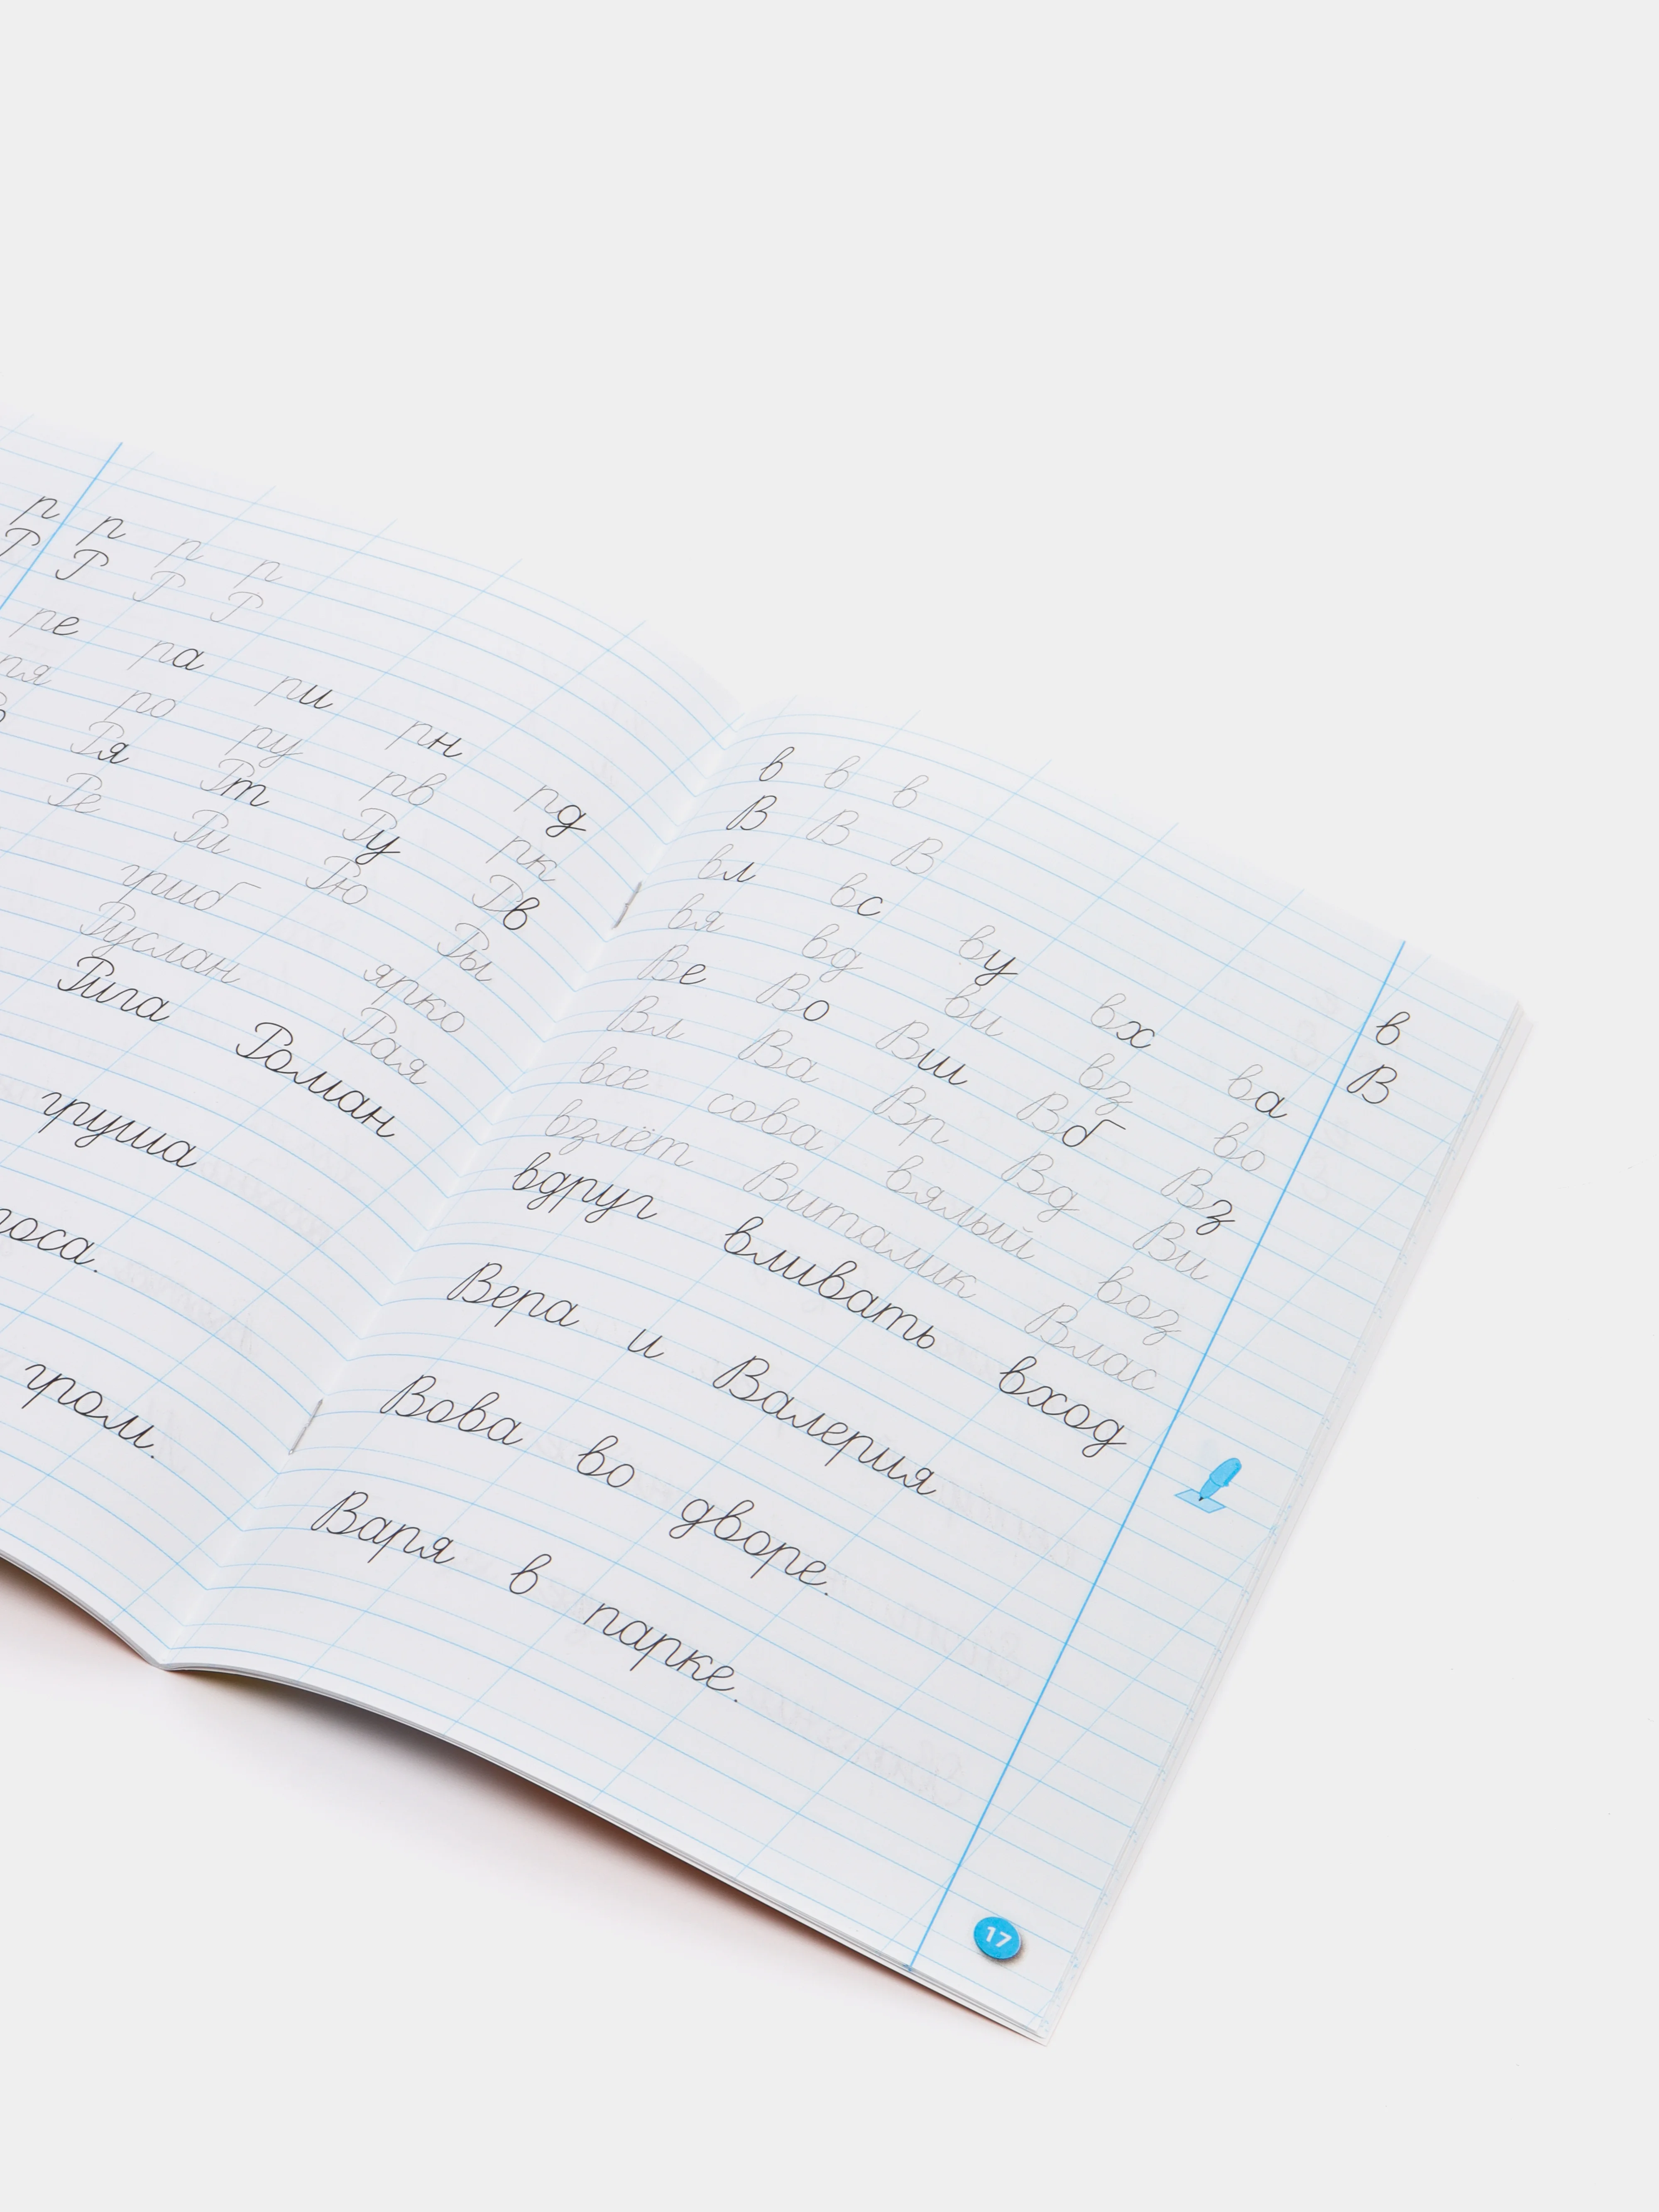 р р р р
Р Р Р Р
ре ра ри рн рд
ря ро ру рв рк
Ря Рт Ру Рв
Ре Ри Рю Ры
гриб ярко
Руслан Рая
Рига Роман
груша
роса.
гром.
в в в в
В В В В
вл вс ву вх ва
вя вд ви вз во
Ве Во Вш Вб Вз
Вл Ва Вр Вд Ви
все сова вялый воз
взлёт Виталик Влас
вдруг вливать вход
Вера и Валерия
Вова во дворе.
Варя в парке.
17